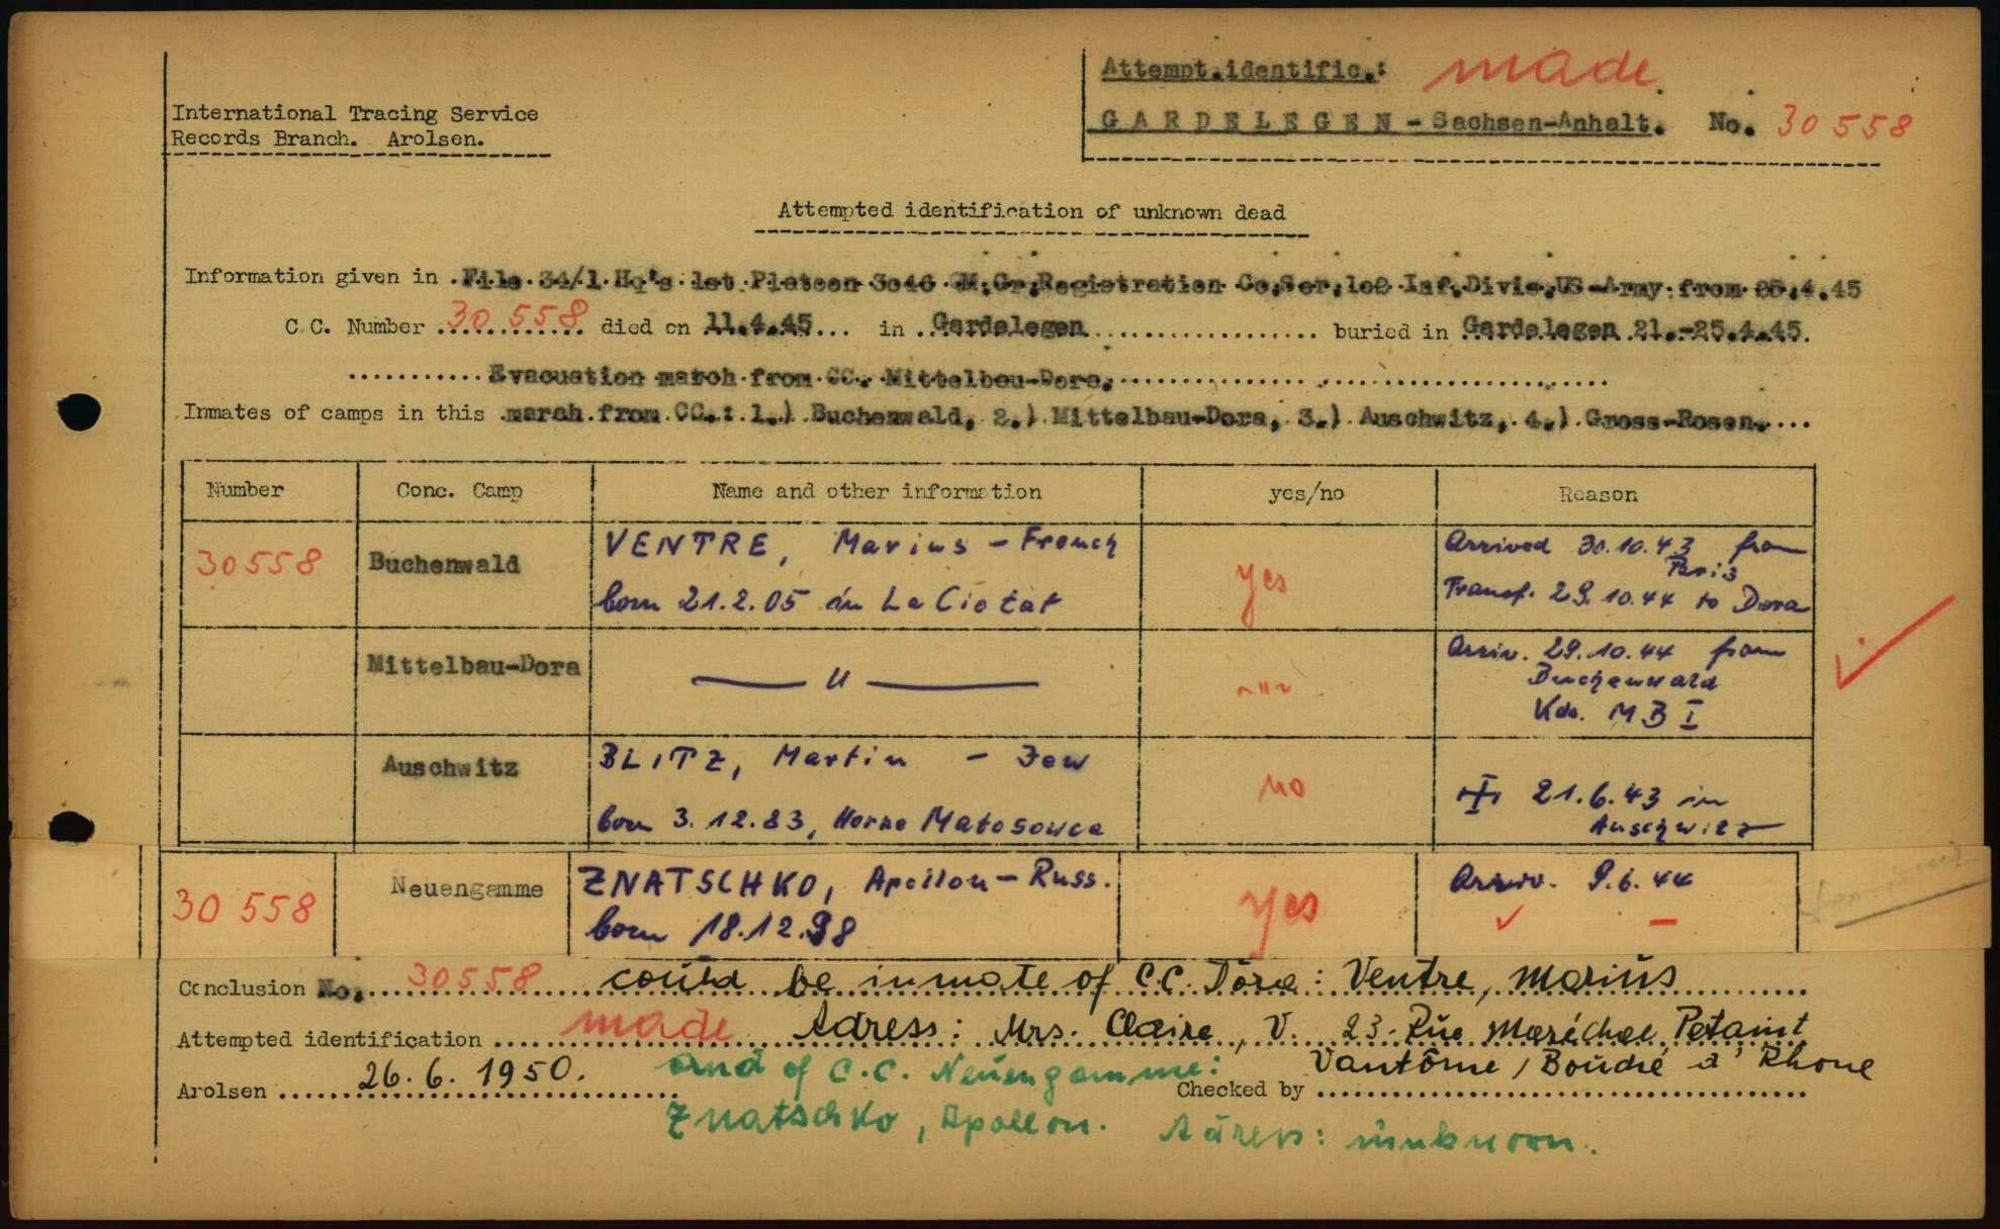 Attempt.identific.: made
GARDELEGEN - Sachsen-Anhalt. No. 30558
International Tracing Service
Records Branch. Arolsen.
Attempted identification of unknown dead
Information given in .File 34/1 Hq's 1st Platoon 3046 QM.Gr.Registration Co.Ser.102 Inf.Divis.US-Army from 25.4.45
C.C. Number 30 558 died on 11.4.45... in ..Gardelegen.......... buried in Gardelegen 21.-25.4.45.
...........Evacuation march from CC. Mittelbau-Dora...........
Inmates of camps in this march from CC.: 1.) Buchenwald, 2.) Mittelbau-Dora, 3.) Auschwitz, 4.) Gross-Rosen....
Number Conc. Camp Name and other information yes/no Reason
30558 Buchenwald VENTRE, Marius - French yes Arrived 30.10.43 from Paris
born 21.2.05 in La Ciotat Transf. 29.10.44 to Dora
Mittelbau-Dora — " — - " - Arriv. 29.10.44 from
Buchenwald
Kdo. MB I
Auschwitz BLITZ, Martin - Jew no
born 3.12.83, Horne Matosowce ✝ 21.6.43 in
Auschwitz
30 558 Neuengamme ZNATSCHKO, Apollon - Russ. yes Arriv. 9.6.44
born 18.12.98
Conclusion No. 30558 could be inmate of C.C. Dora: Ventre, Marius
Attempted identification made Adress: Mrs. Claire, V. 23. Rue Maréchal Petaint
Vantôme / Bouche d' Rhone
Arolsen 26.6.1950. and of C.C. Neuengamme: Checked by
Znatschko, Apollon. Adress: unknown.